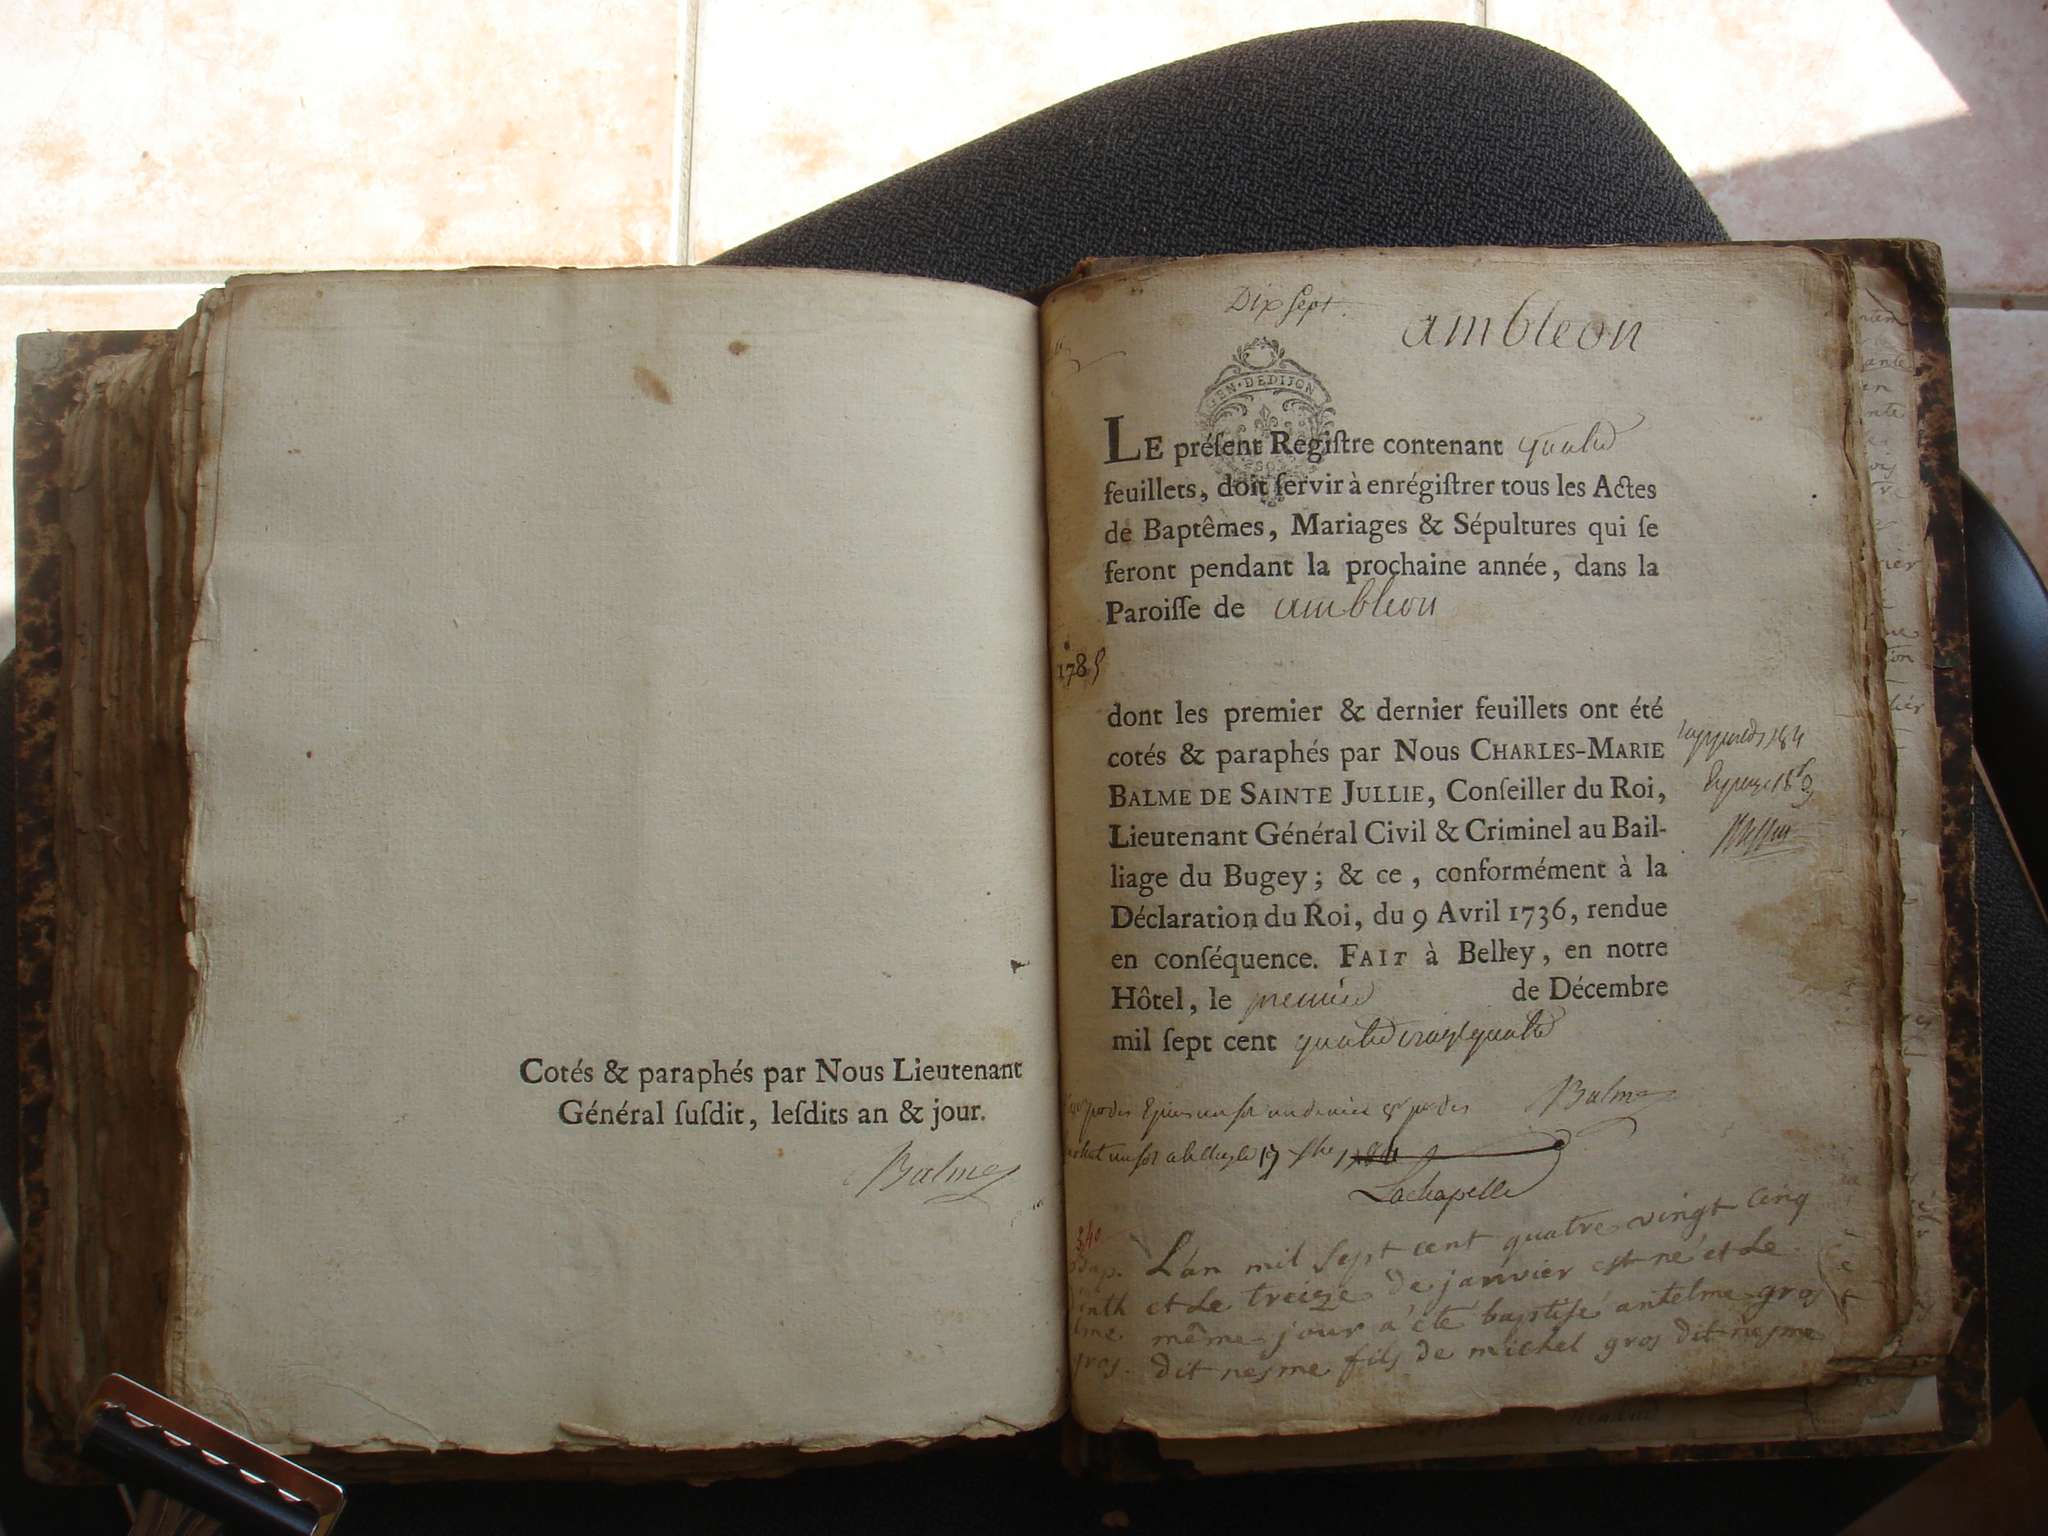 Cotés & paraphés par Nous Lieutenant
Général ſuſdit, leſdits an & jour.
Balme
Dix ſept.
ambleon
GEN·DE DIJON
LE préſent Regiſtre contenant quatre
feuillets, doit ſervir à enrégiſtrer tous les Actes
de Baptêmes, Mariages & Sépultures qui ſe
feront pendant la prochaine année, dans la
Paroiſſe de ambleon
1785
dont les premier & dernier feuillets ont été
cotés & paraphés par Nous CHARLES-MARIE
BALME DE SAINTE JULLIE, Conſeiller du Roi,
Lieutenant Général Civil & Criminel au Bail-
liage du Bugey; & ce, conformément à la
Déclaration du Roi, du 9 Avril 1736, rendue
en conſéquence. FAIT à Belley, en notre
Hôtel, le premier de Décembre
mil ſept cent quatre vingt quatre
Balme
Lachapelle
340
bap.
L'an mil Sept cent quatre vingt Cinq
et Le treize de janvier est né et Le
même jour a été baptiſé antelme gros
gros.
dit nesme fils de michel gros dit nesme